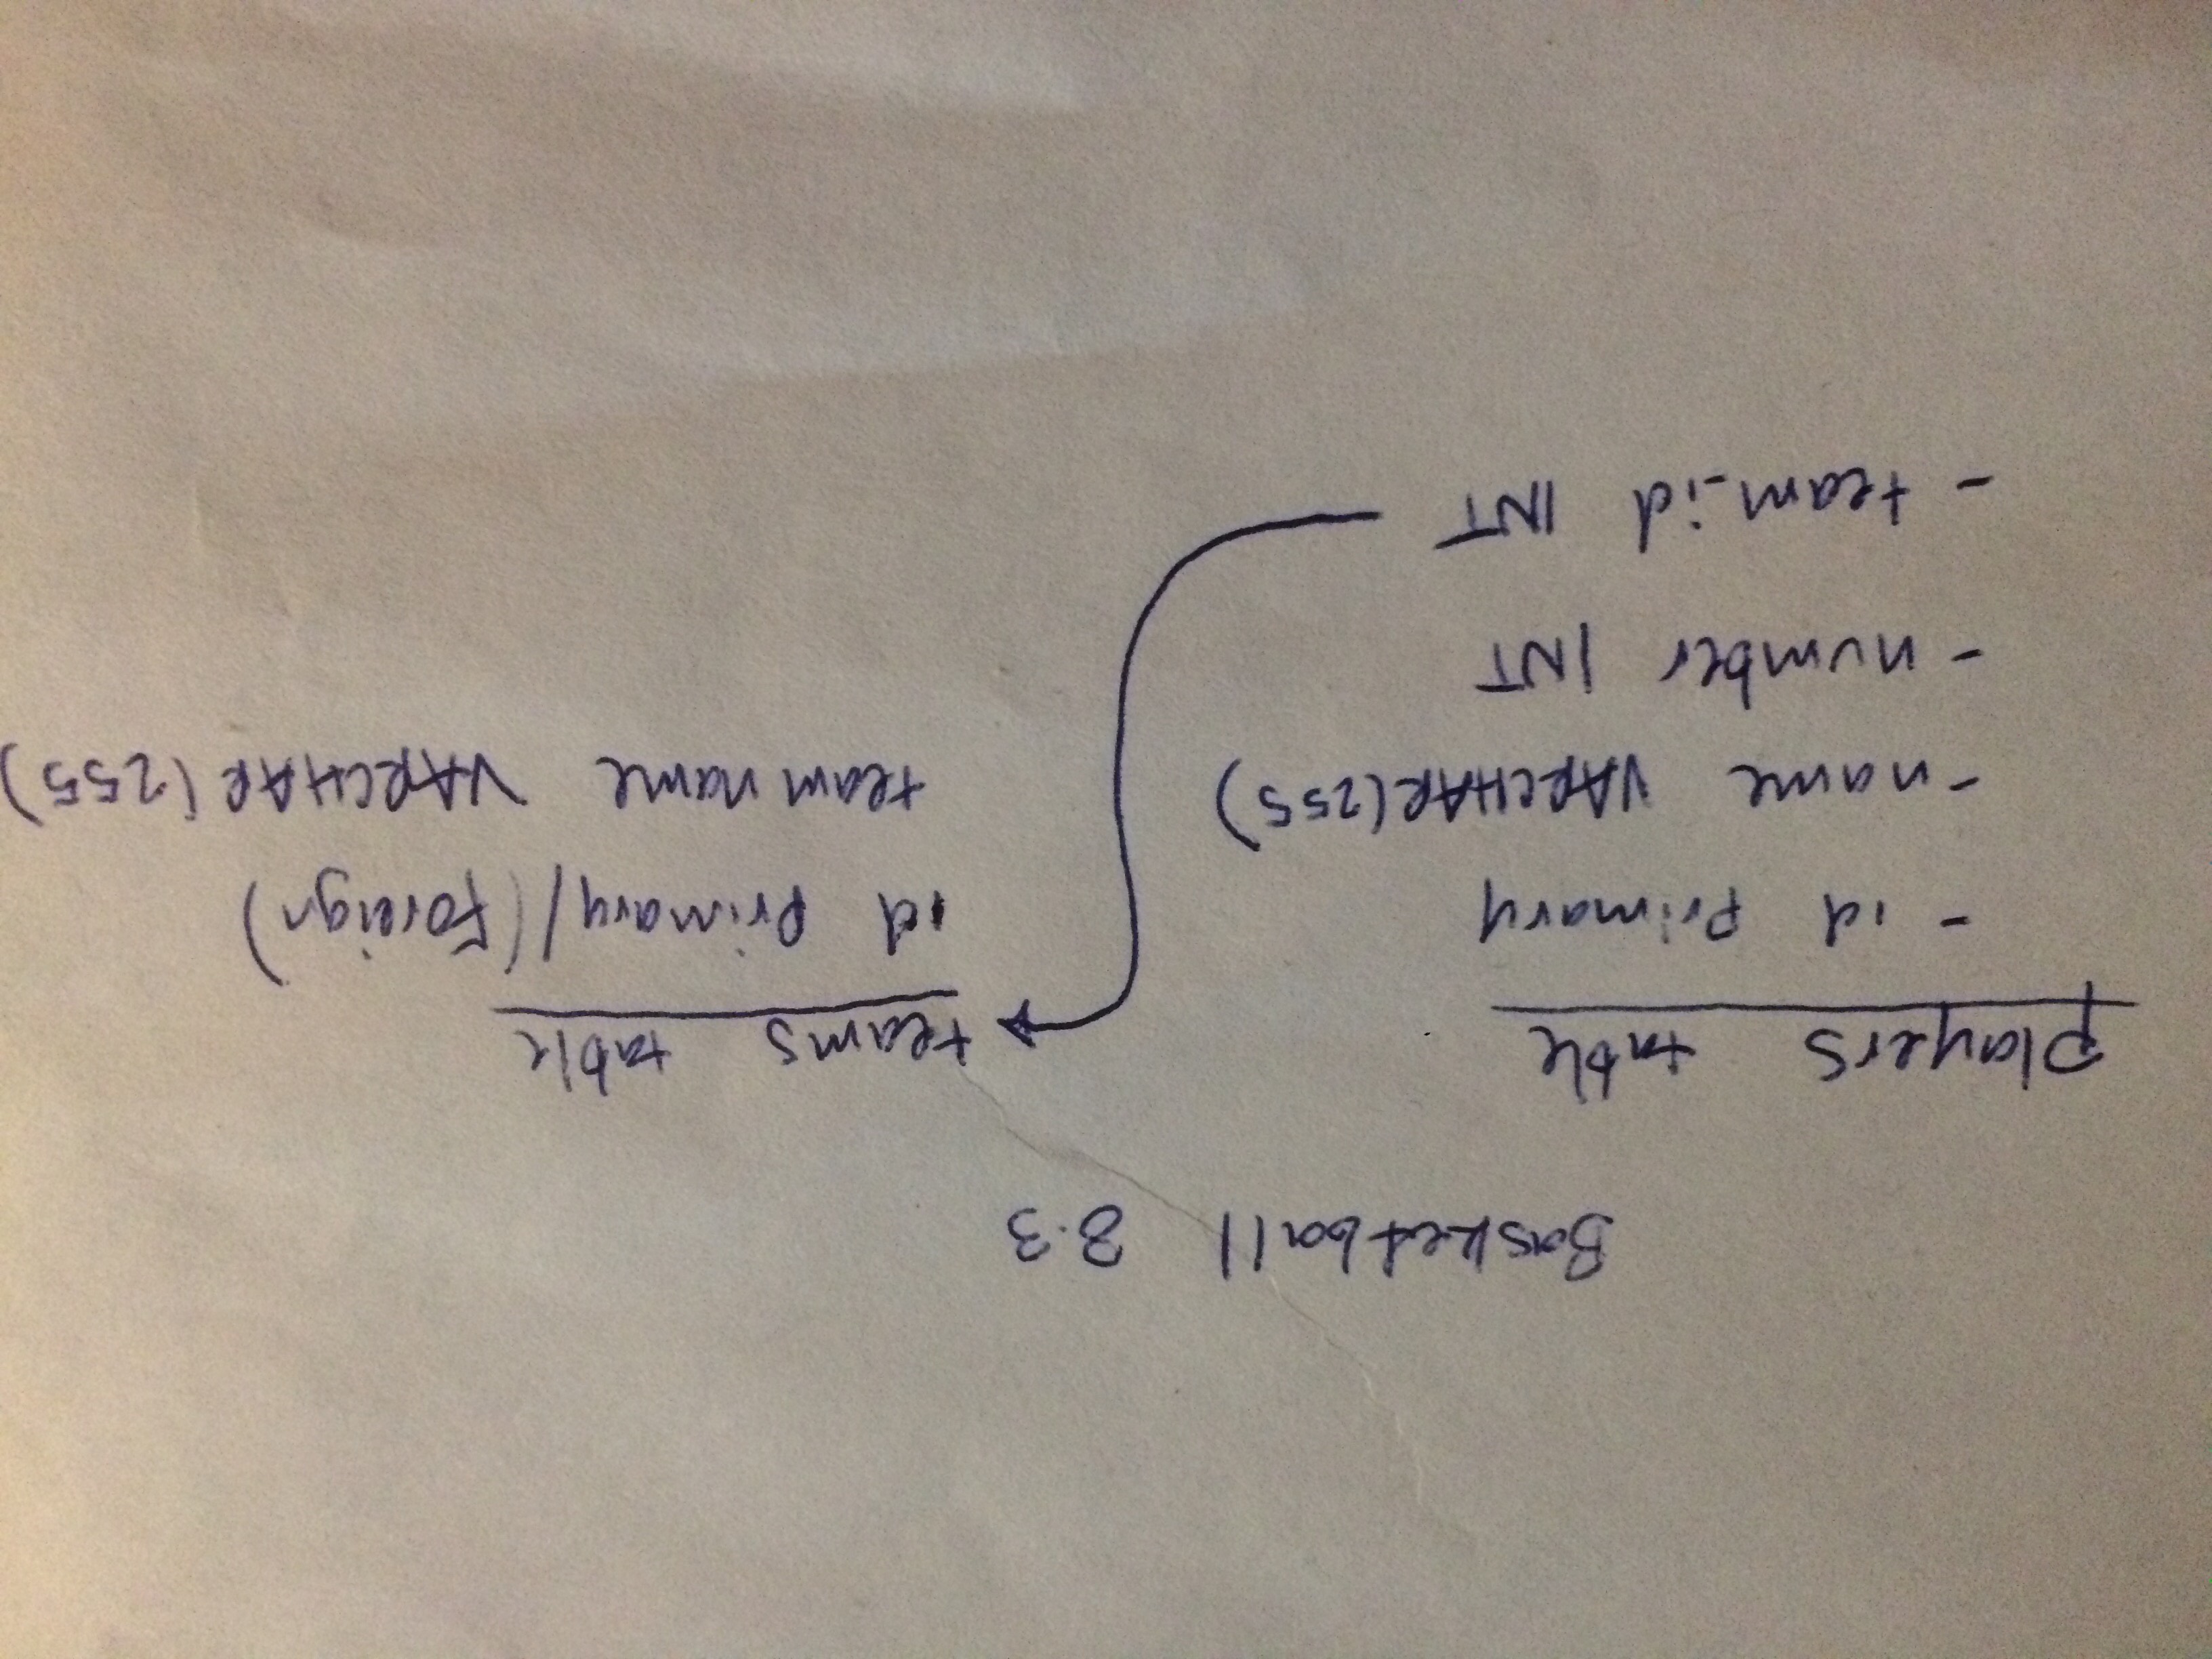 Basketball 8.3
players table
- id Primary
- name VARCHAR(255)
- number INT
- team_id INT
teams table
id Primary/(Foreign)
team name VARCHAR(255)